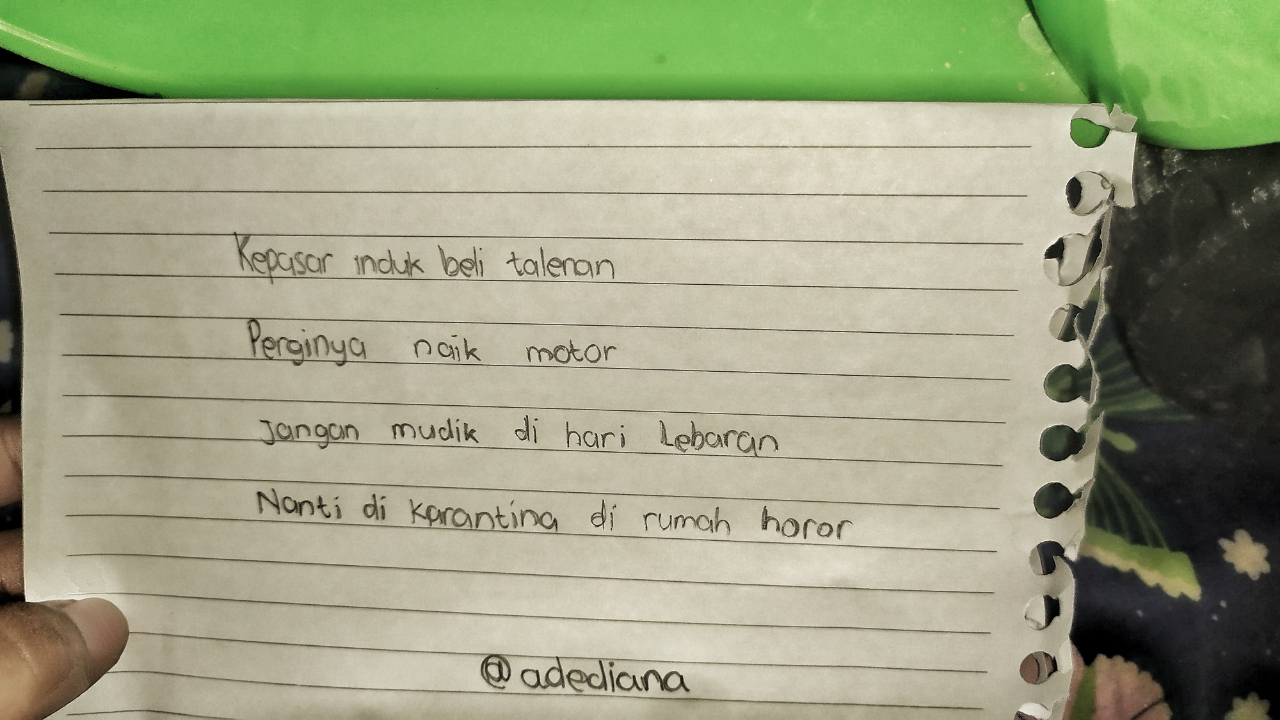 Kepasar induk beli talenan
Perginya naik motor
Jangan mudik di hari Lebaran
Nanti di karantina di rumah horor
@adediana